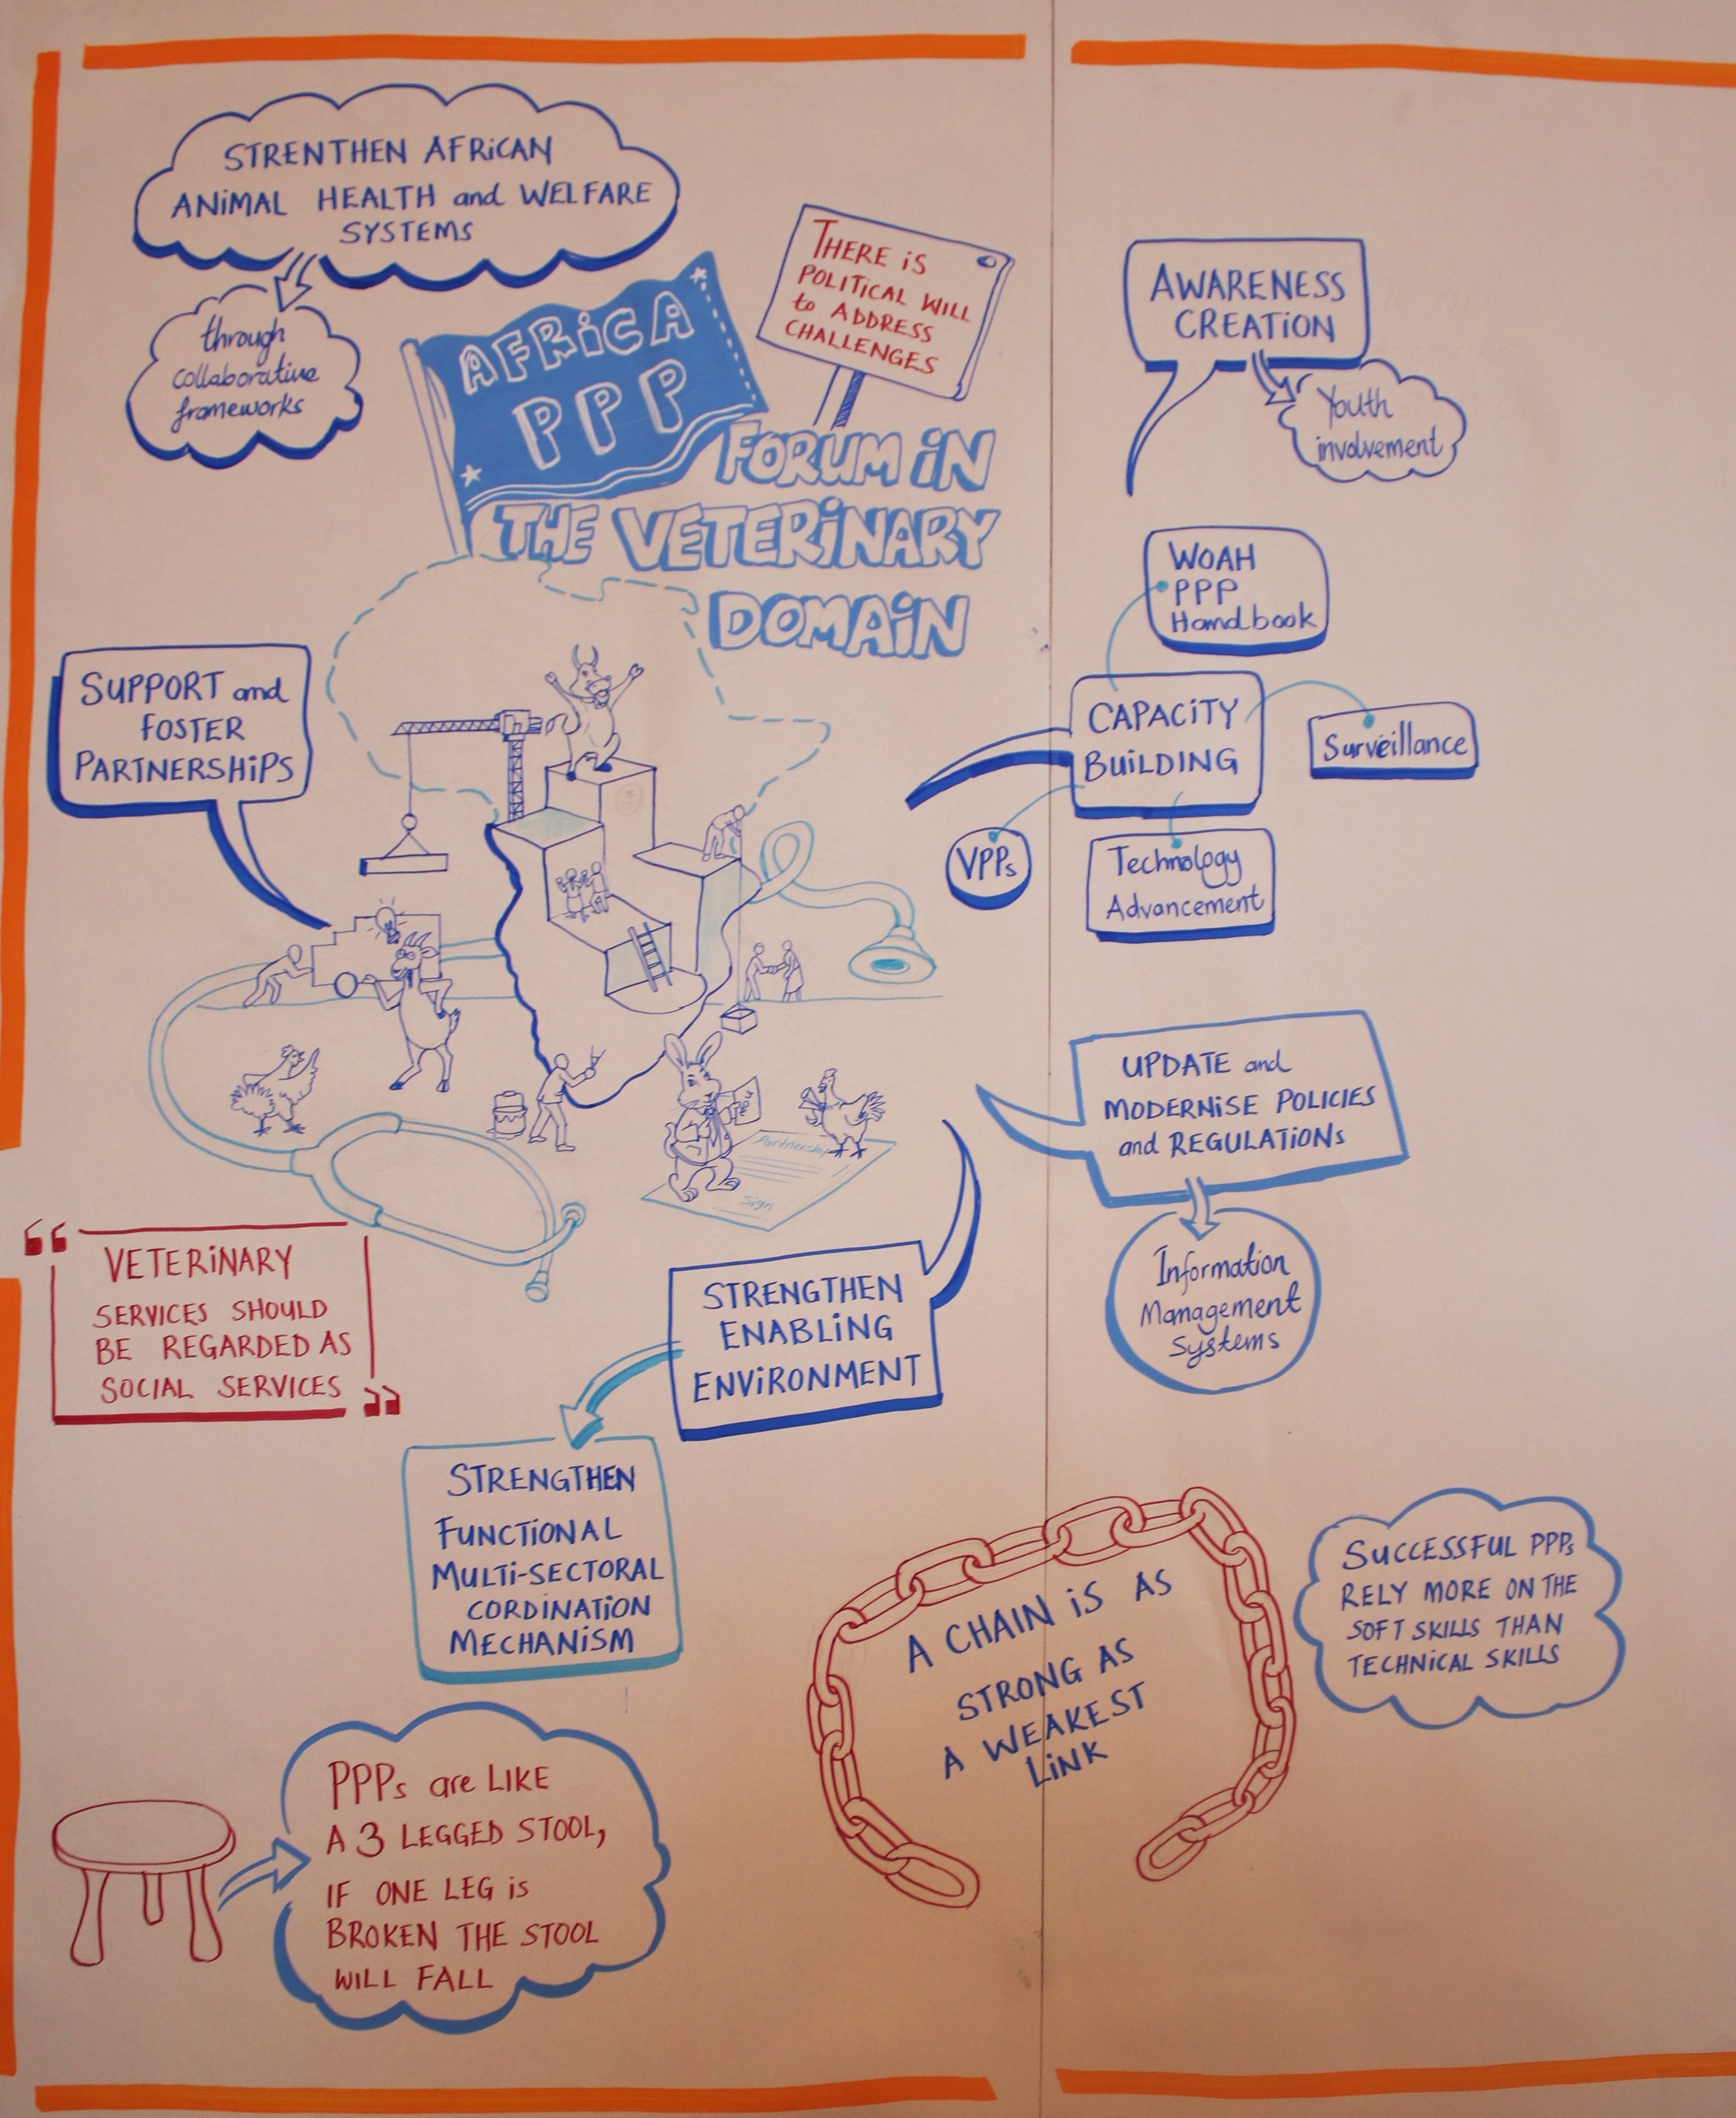 STRENTHEN AFRICAN
ANIMAL HEALTH and WELFARE
SYSTEMS
through
collaborative
frameworks
AFRICA
PPP
FORUM IN
THE VETERINARY
DOMAIN
THERE IS
POLITICAL WILL
to ADDRESS
CHALLENGES
AWARENESS
CREATION
Youth
involvement
WOAH
PPP
Handbook
CAPACITY
BUILDING
Surveillance
VPPs
Technology
Advancement
SUPPORT and
FOSTER
PARTNERSHIPS
Partnership
Sign
UPDATE and
MODERNISE POLICIES
and REGULATIONS
Information
Management
Systems
VETERINARY
SERVICES SHOULD
BE REGARDED AS
SOCIAL SERVICES
STRENGTHEN
ENABLING
ENVIRONMENT
STRENGTHEN
FUNCTIONAL
MULTI-SECTORAL
CORDINATION
MECHANISM
A CHAIN IS AS
STRONG AS
A WEAKEST
LINK
SUCCESSFUL PPPs
RELY MORE ON THE
SOFT SKILLS THAN
TECHNICAL SKILLS
PPPs are LIKE
A 3 LEGGED STOOL,
IF ONE LEG is
BROKEN THE STOOL
WILL FALL